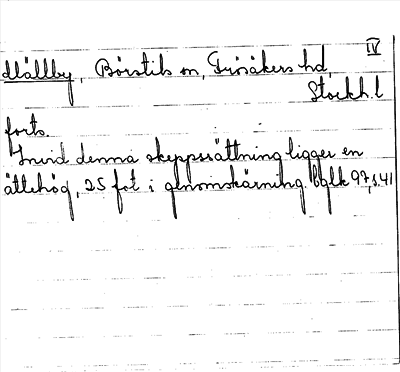 IV
Mällby, Börstils sn, Frösåkers hd,
Stockh. l
forts.
Invid denna skeppssättning ligger en
ättehög, 25 fot i genomskärning. Uglk 97, s. 41